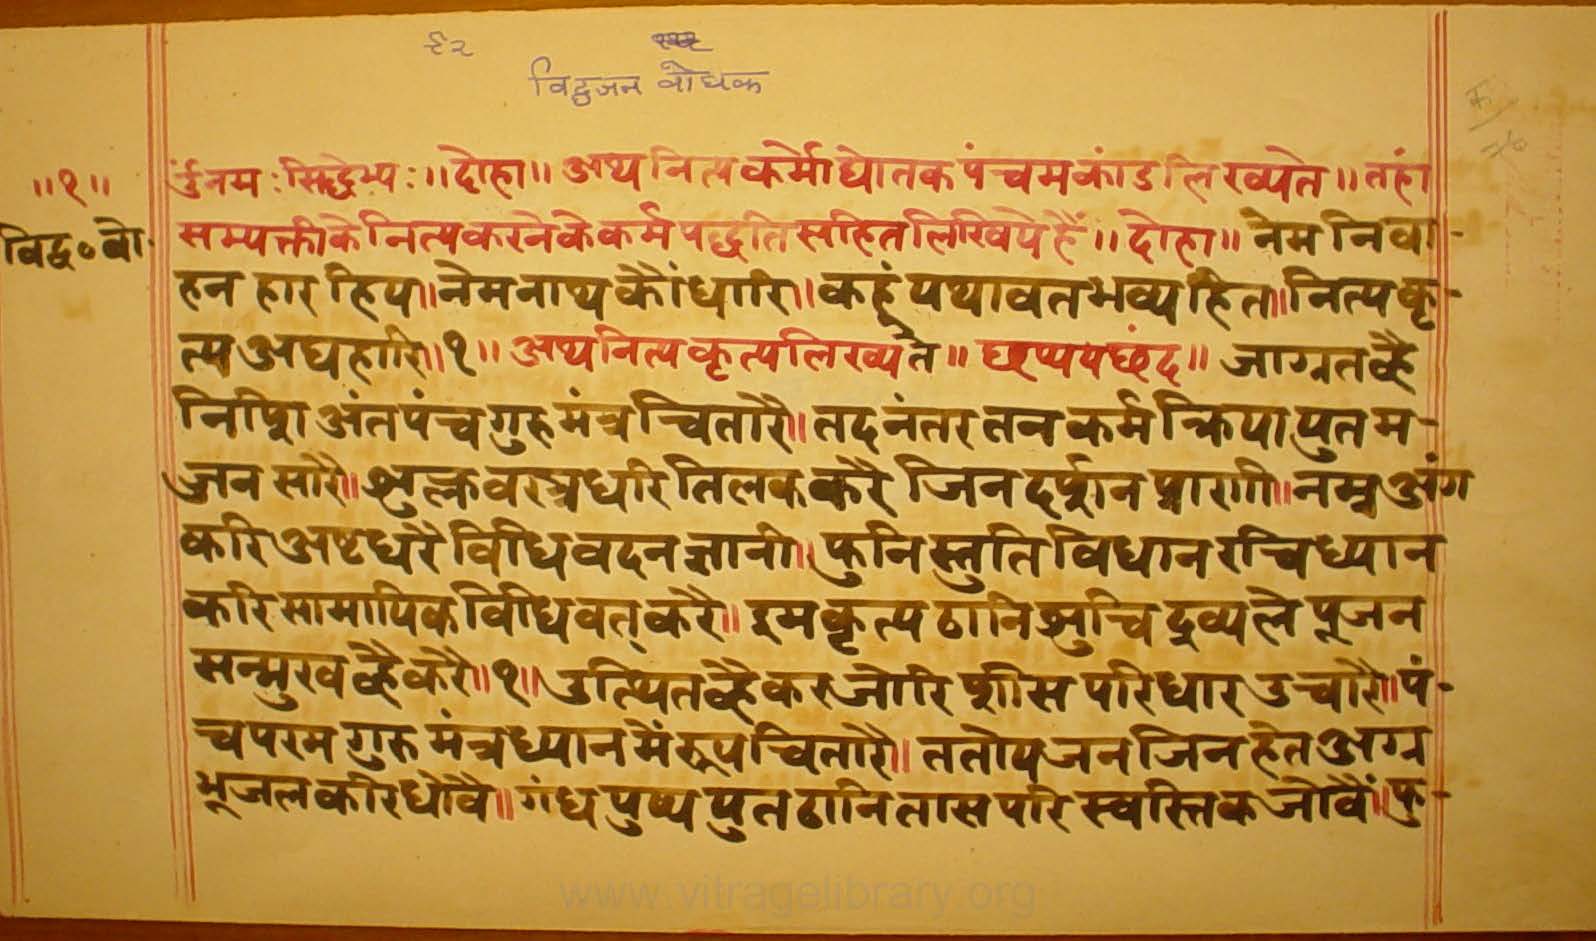 ९२
विद्वजन बोधक
॥१॥
विद्व०बो.
र्उनमः सिद्धेभ्यः॥दोहा॥ अथ नित्य कर्मोद्योतक पंचमकांड लिख्यते॥ तहां
सम्यक्तीके नित्यकरनेके कर्म पद्धति सहित लिखिये हैं॥ दोहा॥ नेम निवा-
हन हार हिय॥नेमनाथ कौंधारि॥कहूं यथावत भव्य हित॥नित्य कृ-
त्य अघहारि॥१॥ अथनित्य कृत्यलिख्यते॥ छप्पयछंद॥ जाग्रतव्है
निशि अंतपंच गुरु मंत्र चितारै॥तदनंतर तन कर्म क्रिया युत म-
जन सारै॥शुक्लवस्त्रधरि तिलक करै जिन दर्शन प्राणी॥नम्र अंग
करि अष्ट धरै विधि वदन ज्ञानी॥फुनि स्तुति विधान रचि ध्यान
करि सामायिक विधिवत् करै॥इम कृत्य ठानि शुचि द्रव्य ले पूजन
सन्मुख व्है करै॥१॥उत्थितव्है कर जोरि शीस परिधार उचारै॥पं-
च परम गुरु मंत्र ध्यान मैं रूप चितारै॥ततो यजन जिन हेत अग्र
भू जल करि धोवै॥गंध पुष्प युत ठानि तास परि स्वस्तिक जोवै॥फु-
www.vitragelibrary.org